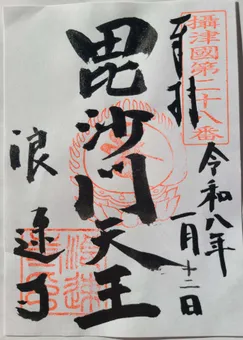 攝津國第二十八番
奉拝
令和八年
一月十二日
毘沙門天王
浪速寺